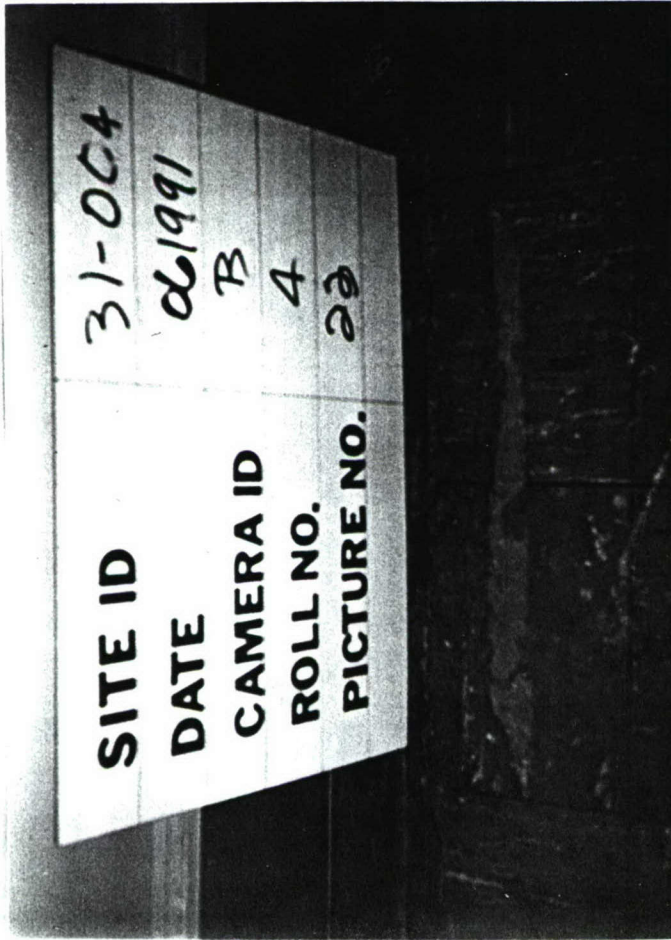 SITE ID 31-OC4
DATE 061991
CAMERA ID B
ROLL NO. 4
PICTURE NO. 22